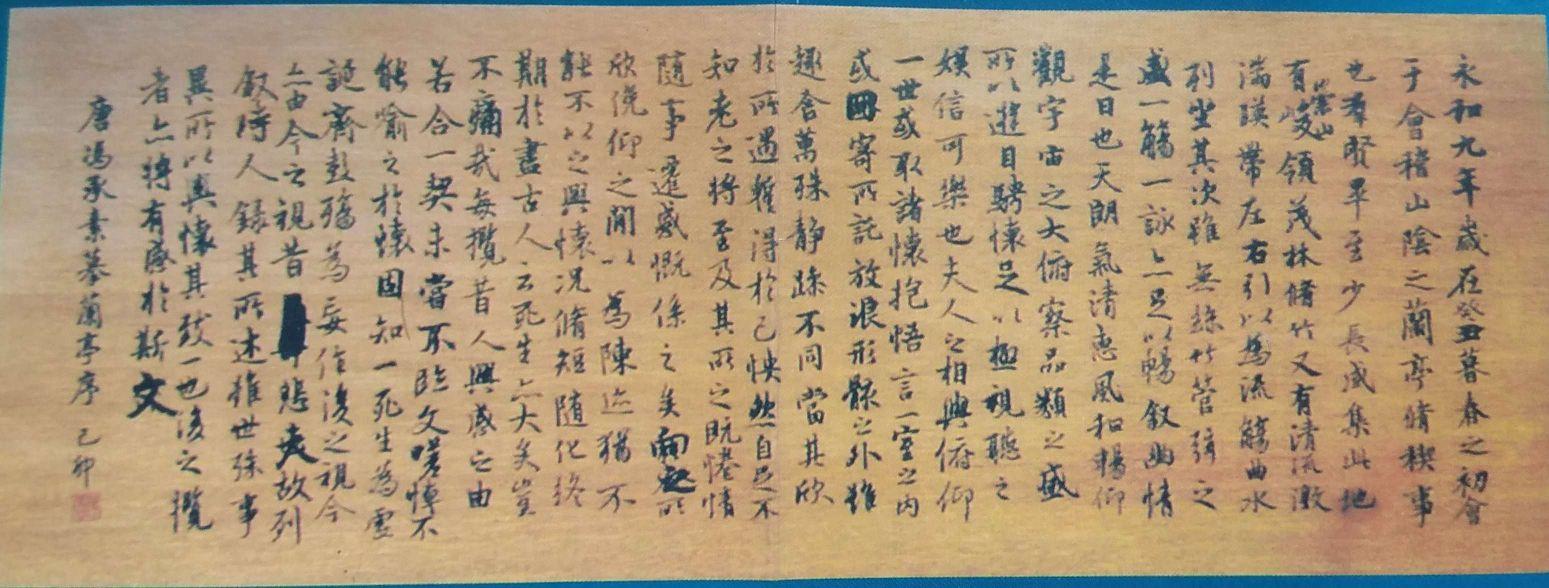 永和九年歲在癸丑暮春之初會
于會稽山陰之蘭亭脩稧事
也羣賢畢至少長咸集此地
有崇山峻領茂林脩竹又有清流激
湍暎帶左右引以為流觴曲水
列坐其次雖無絲竹管弦之
盛一觴一詠亦足以暢叙幽情
是日也天朗氣清惠風和暢仰
觀宇宙之大俯察品類之盛
所以遊目騁懷足以極視聽之
娛信可樂也夫人之相與俯仰
一世或取諸懷抱悟言一室之內
或因寄所託放浪形骸之外雖
趣舍萬殊靜躁不同當其欣
於所遇暫得於己怏然自足不
知老之將至及其所之既惓情
隨事遷感慨係之矣向之所
欣俛仰之間以為陳迹猶不
能不以之興懷況脩短隨化終
期於盡古人云死生亦大矣豈
不痛哉每攬昔人興感之由
若合一契未嘗不臨文嗟悼不
能喻之於懷固知一死生為虛
誕齊彭殤為妄作後之視今
亦由今之視昔悲夫故列
叙時人錄其所述雖世殊事
異所以興懷其致一也後之攬
者亦將有感於斯文
唐馮承素摹蘭亭序 己卯